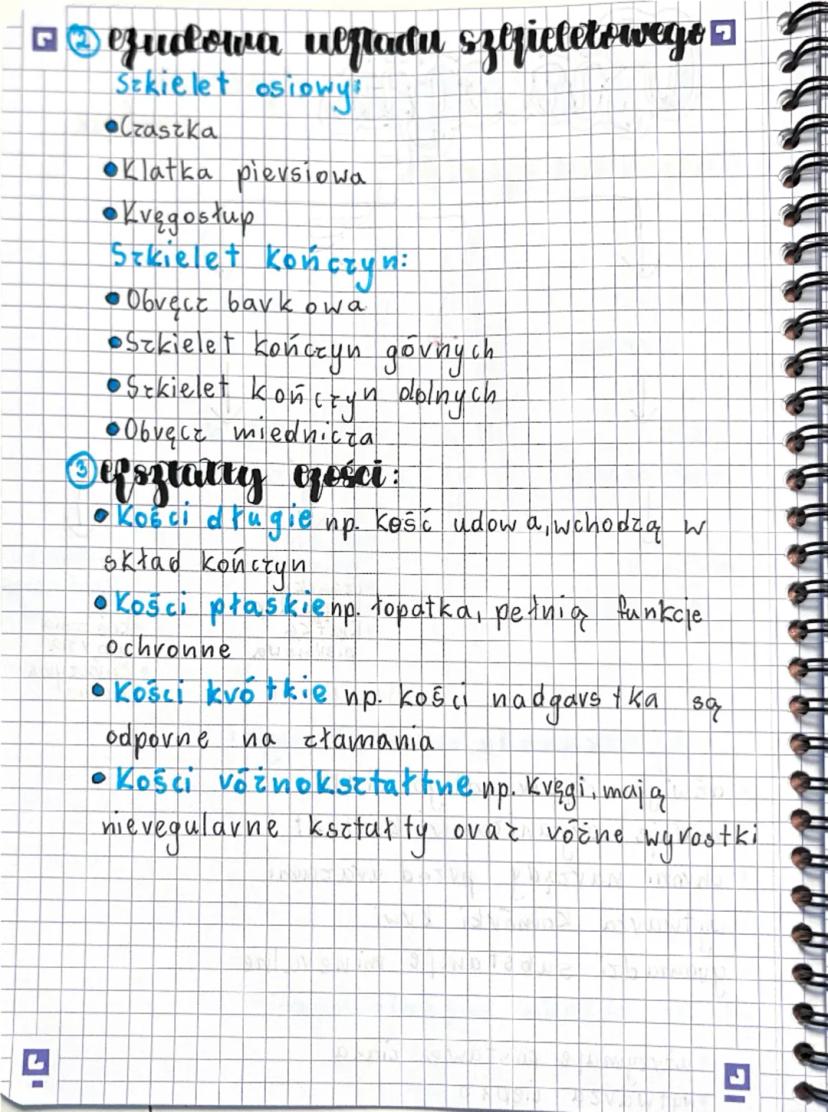 ② Budowa układu szkieletowego
Szkielet osiowy:
•Czaszka
•Klatka piersiowa
•Kręgosłup
Szkielet kończyn:
•Obręcz barkowa
•Szkielet kończyn górnych
•Szkielet kończyn dolnych
•Obręcz miednicza
③ Kształty kości:
•Kości długie np. kość udowa, wchodzą w
skład kończyn
•Kości płaskie np. łopatka, pełnią funkcje
ochronne
•Kości krótkie np. kości nadgarstka są
odporne na złamania
•Kości różnokształtne np. kręgi, mają
nieregularne kształty oraz różne wyrostki